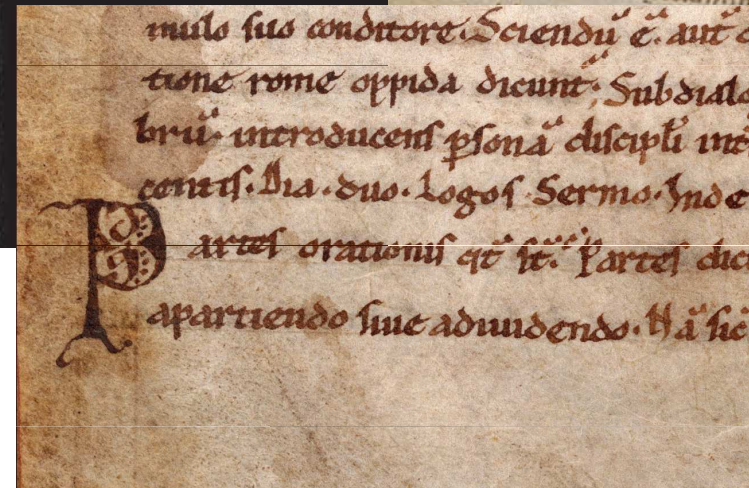 mulo suo conditore. Sciendū ē. aut̄
tione rome oppida dicunt̄; Sub dialo
brū. introducens p̱sonā discipl̄i int̄
centis. Dia. duo. logos. Sermo. Inde
Partes orationis q̄t s̄t. Partes dicū
apartiendo siue adiuidendo. Nā sic̄